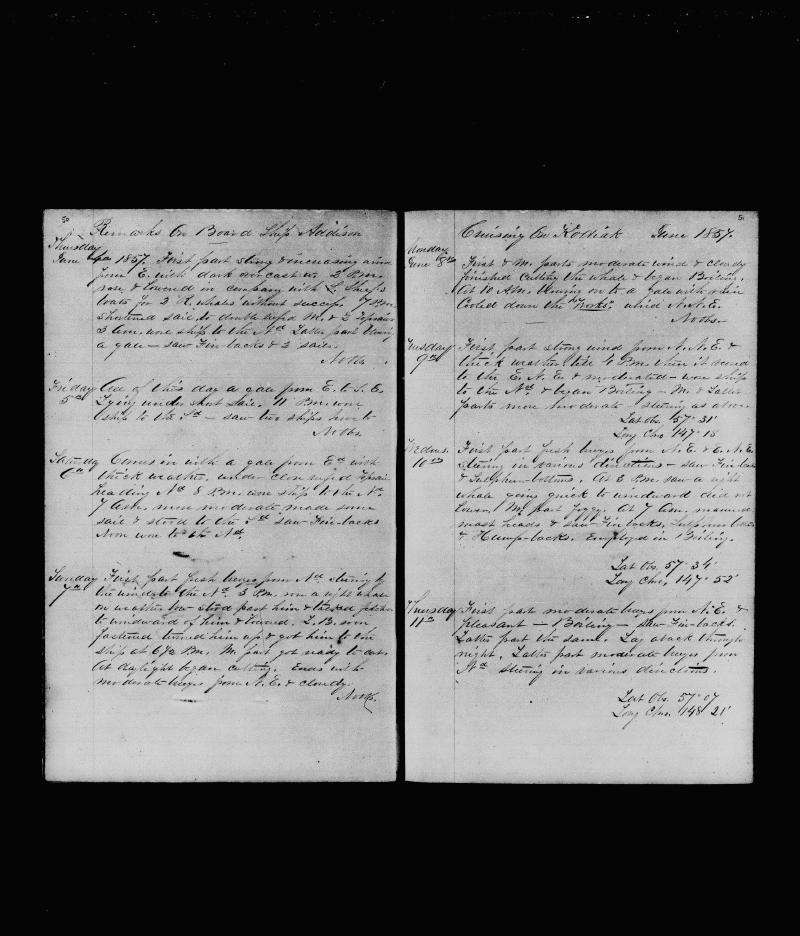 50
Remarks On Board Ship Addison
Thursday
June 4th 1857. First part strong & increasing wind
from E. with dark overcast wr. 2 P.m.
rose & lowered in company with Ships
boats for 2 R. whales without success. 7 P.m.
shortened sail to double reefd M. & 2 Topsails
3 A.m. wore ship to the Nd Latter part blowing
a gale — saw Fin-backs & 2 sails.
No Obs.
Friday All of this day a gale from E. to S.E.
5th Lying under short sail. 11 P.m. wore
ship to the Sd — saw two ships
No Obs.
Saturday Comes in with a gale from Ed with
6th thick weather, under close reefd Topsails
heading Nd 8 P.m. wore ship to the Nd.
7 A.m. more moderate made some
sail & stood to the Sd saw Fin-backs
Noon wore to the Nd.
Sunday First part fresh breezes from Nd steering by
7th the wind to the Nd. 3 P.m. saw a right whale
on weather bow stood past him & tacked
to windward of him & lowered. L.B. soon
fastened turned him up & got him to the
ship at 6½ P.m. M. part got ready to cut.
At daylight began cutting. Ends with
moderate breezes from N.E. & cloudy.
No Obs.
51
Cruising On Kodiak June 1857.
Monday
June 8th First & M. parts moderate wind & cloudy
finished cutting the whale & began Boiling.
At 10 A.m. blowing on to a gale with rain
Cooled down the "Works". wind N.N.E.
No Obs.
Tuesday First part strong wind from N.N.E. &
9th thick weather till 4 P.m. when it veered
to the E.N.E. & moderated — wore ship
to the Nd. & began Boiling — M. & Latter
parts more moderate — steering as above.
Lat Obs. 57° 31'
Long Chro. 147° 18'
Wednes. First part fresh breezes from N.E. & E.N.E.
10th steering in various directions — saw Fin-backs
& Sulphur-bottoms. At 8 P.m. saw a right
whale going quick to windward did not
lower. M. part foggy. At 7 A.m. manned
mast heads & saw Fin backs, Sulphur bottoms
& Hump-backs. Employd in Boiling.
Lat Obs. 57° 34'
Long Chro. 147° 52'
Thursday First part moderate breezes from N.E. &
11th pleasant — Boiling — saw Fin-backs.
Latter part the same. Lay aback through
night. Latter part moderate breezes from
Nd steering in various directions.
Lat Obs. 57° 07'
Long Chro. 148° 21'